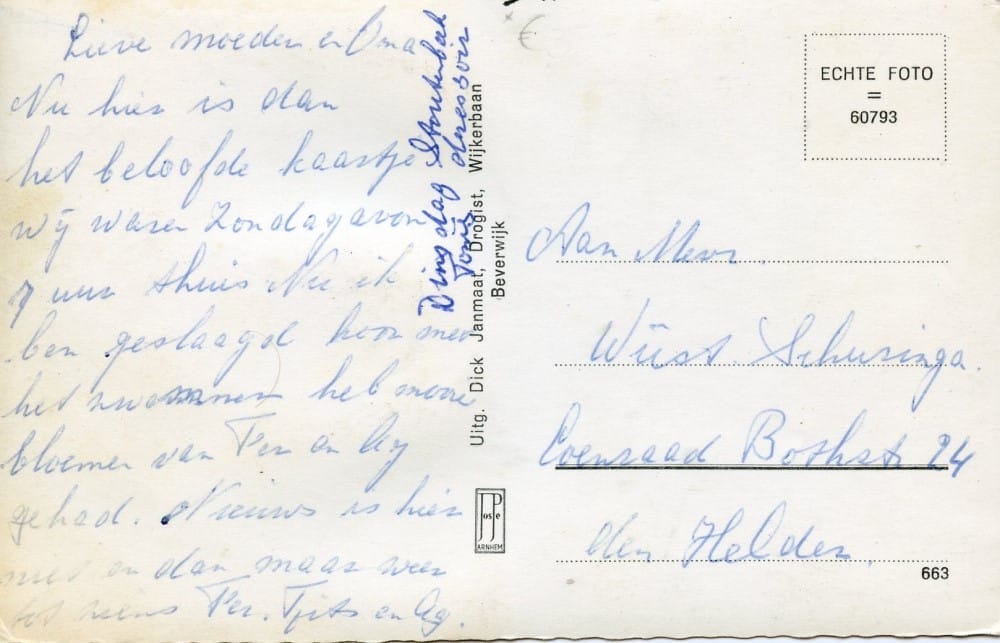 Lieve moeder en Oma
Nu hier is dan
het beloofde kaartje
wij waren Zondagavon
7 uur thuis Nu ik
ben geslaagd hoor met
het zwemmen heb mooie
bloemen van Fer en Ag
gehad. Nieuws is hier
niet en dan maar weer
tot ziens Fer. Tjits en Ag.
Dingsdag Stoutenbeek
Tonis
Uitg. Dick Janmaat, Drogist, Wijkerbaan
Beverwijk
JosPe
ARNHEM
ECHTE FOTO
=
60793
Aan Mevr.
Wüst. Schuringa.
Coenraad Bothstr 24
den Helder.
663